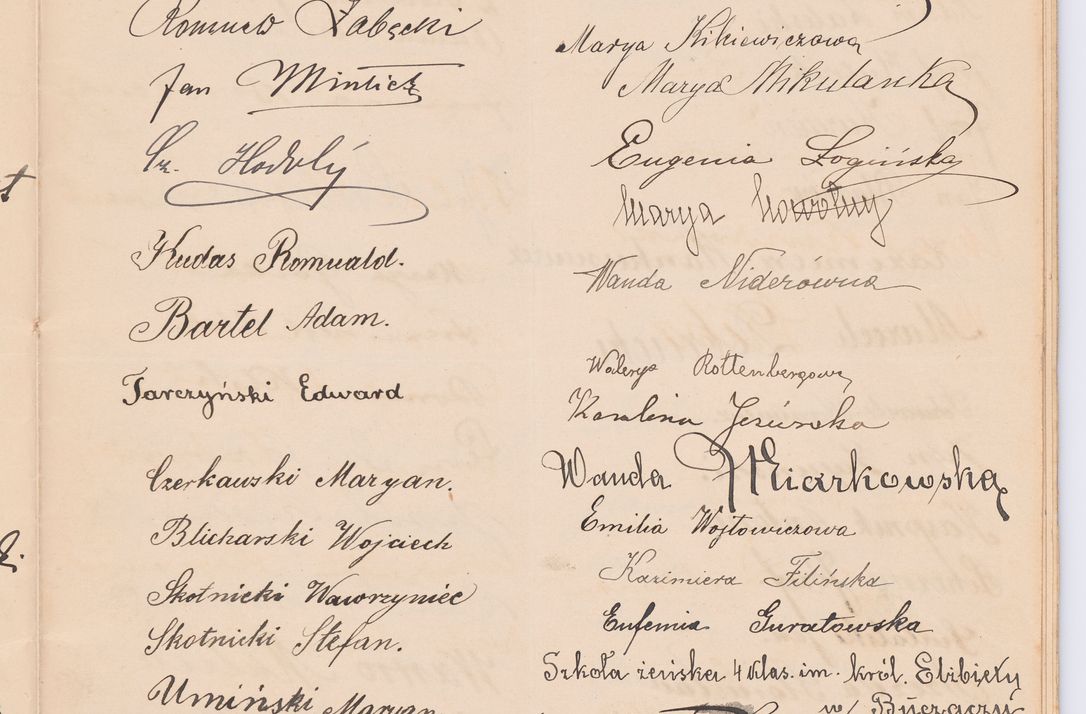 Romuald Żabęcki
Jan
Kudas Romuald.
Bartel Adam.
Tarczyński Edward
Czerkawski Maryan.
Blicharski Wojciech
Skotnicki Wawrzyniec
Skotnicki Stefan.
Umiński Maryan
Marya Kikiewiczowa
Marya Mikulanka
Eugenia Łogińska
Marya Nowotny
Wanda Niderówna
Walerya Rottenbergowa
Karolina
Wanda Miarkowska
Emilia Wojtowiczowa
Kazimiera Filińska
Eufemia Guratowska
Szkoła żeńska 4 klas. im. król. Elżbiety
w Buczaczu